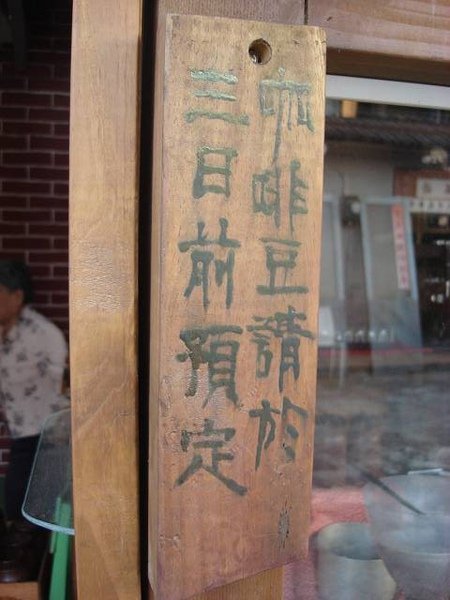 咖啡豆請於
三日前預定